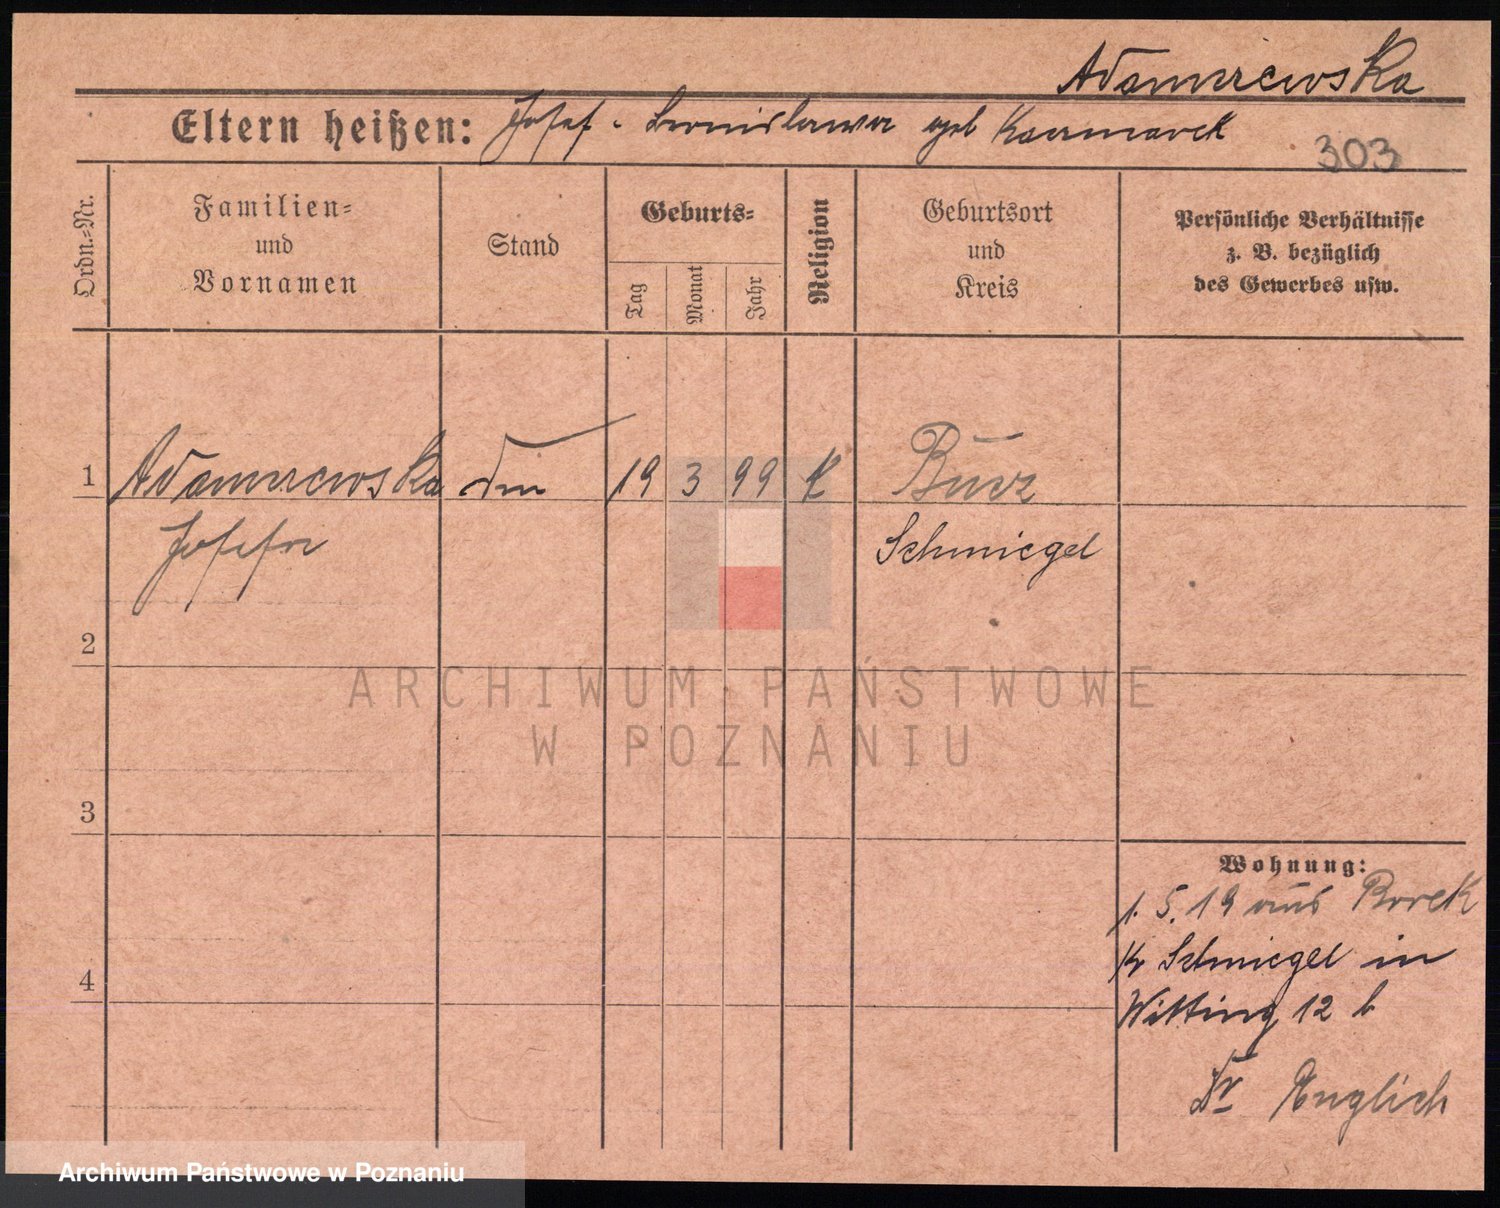 Adamczewska
Eltern heißen: Josef u. Bronislawa geb Kaczmarek
303
Ordn.-Nr.
Familien-
und
Vornamen
Stand
Geburts-
Tag
Monat
Jahr
Religion
Geburtsort
und
Kreis
Persönliche Verhältnisse
z. B. bezüglich
des Gewerbes usw.
1 Adamczewska 19 3 99 K Bucz
Josefa Schmiegel
2
3
4
Wohnung:
1. 5. 19 aus Borek
Kr Schmiegel in
Witting 12 b
Dr Englich
ARCHIWUM PAŃSTWOWE
W POZNANIU
Archiwum Państwowe w Poznaniu